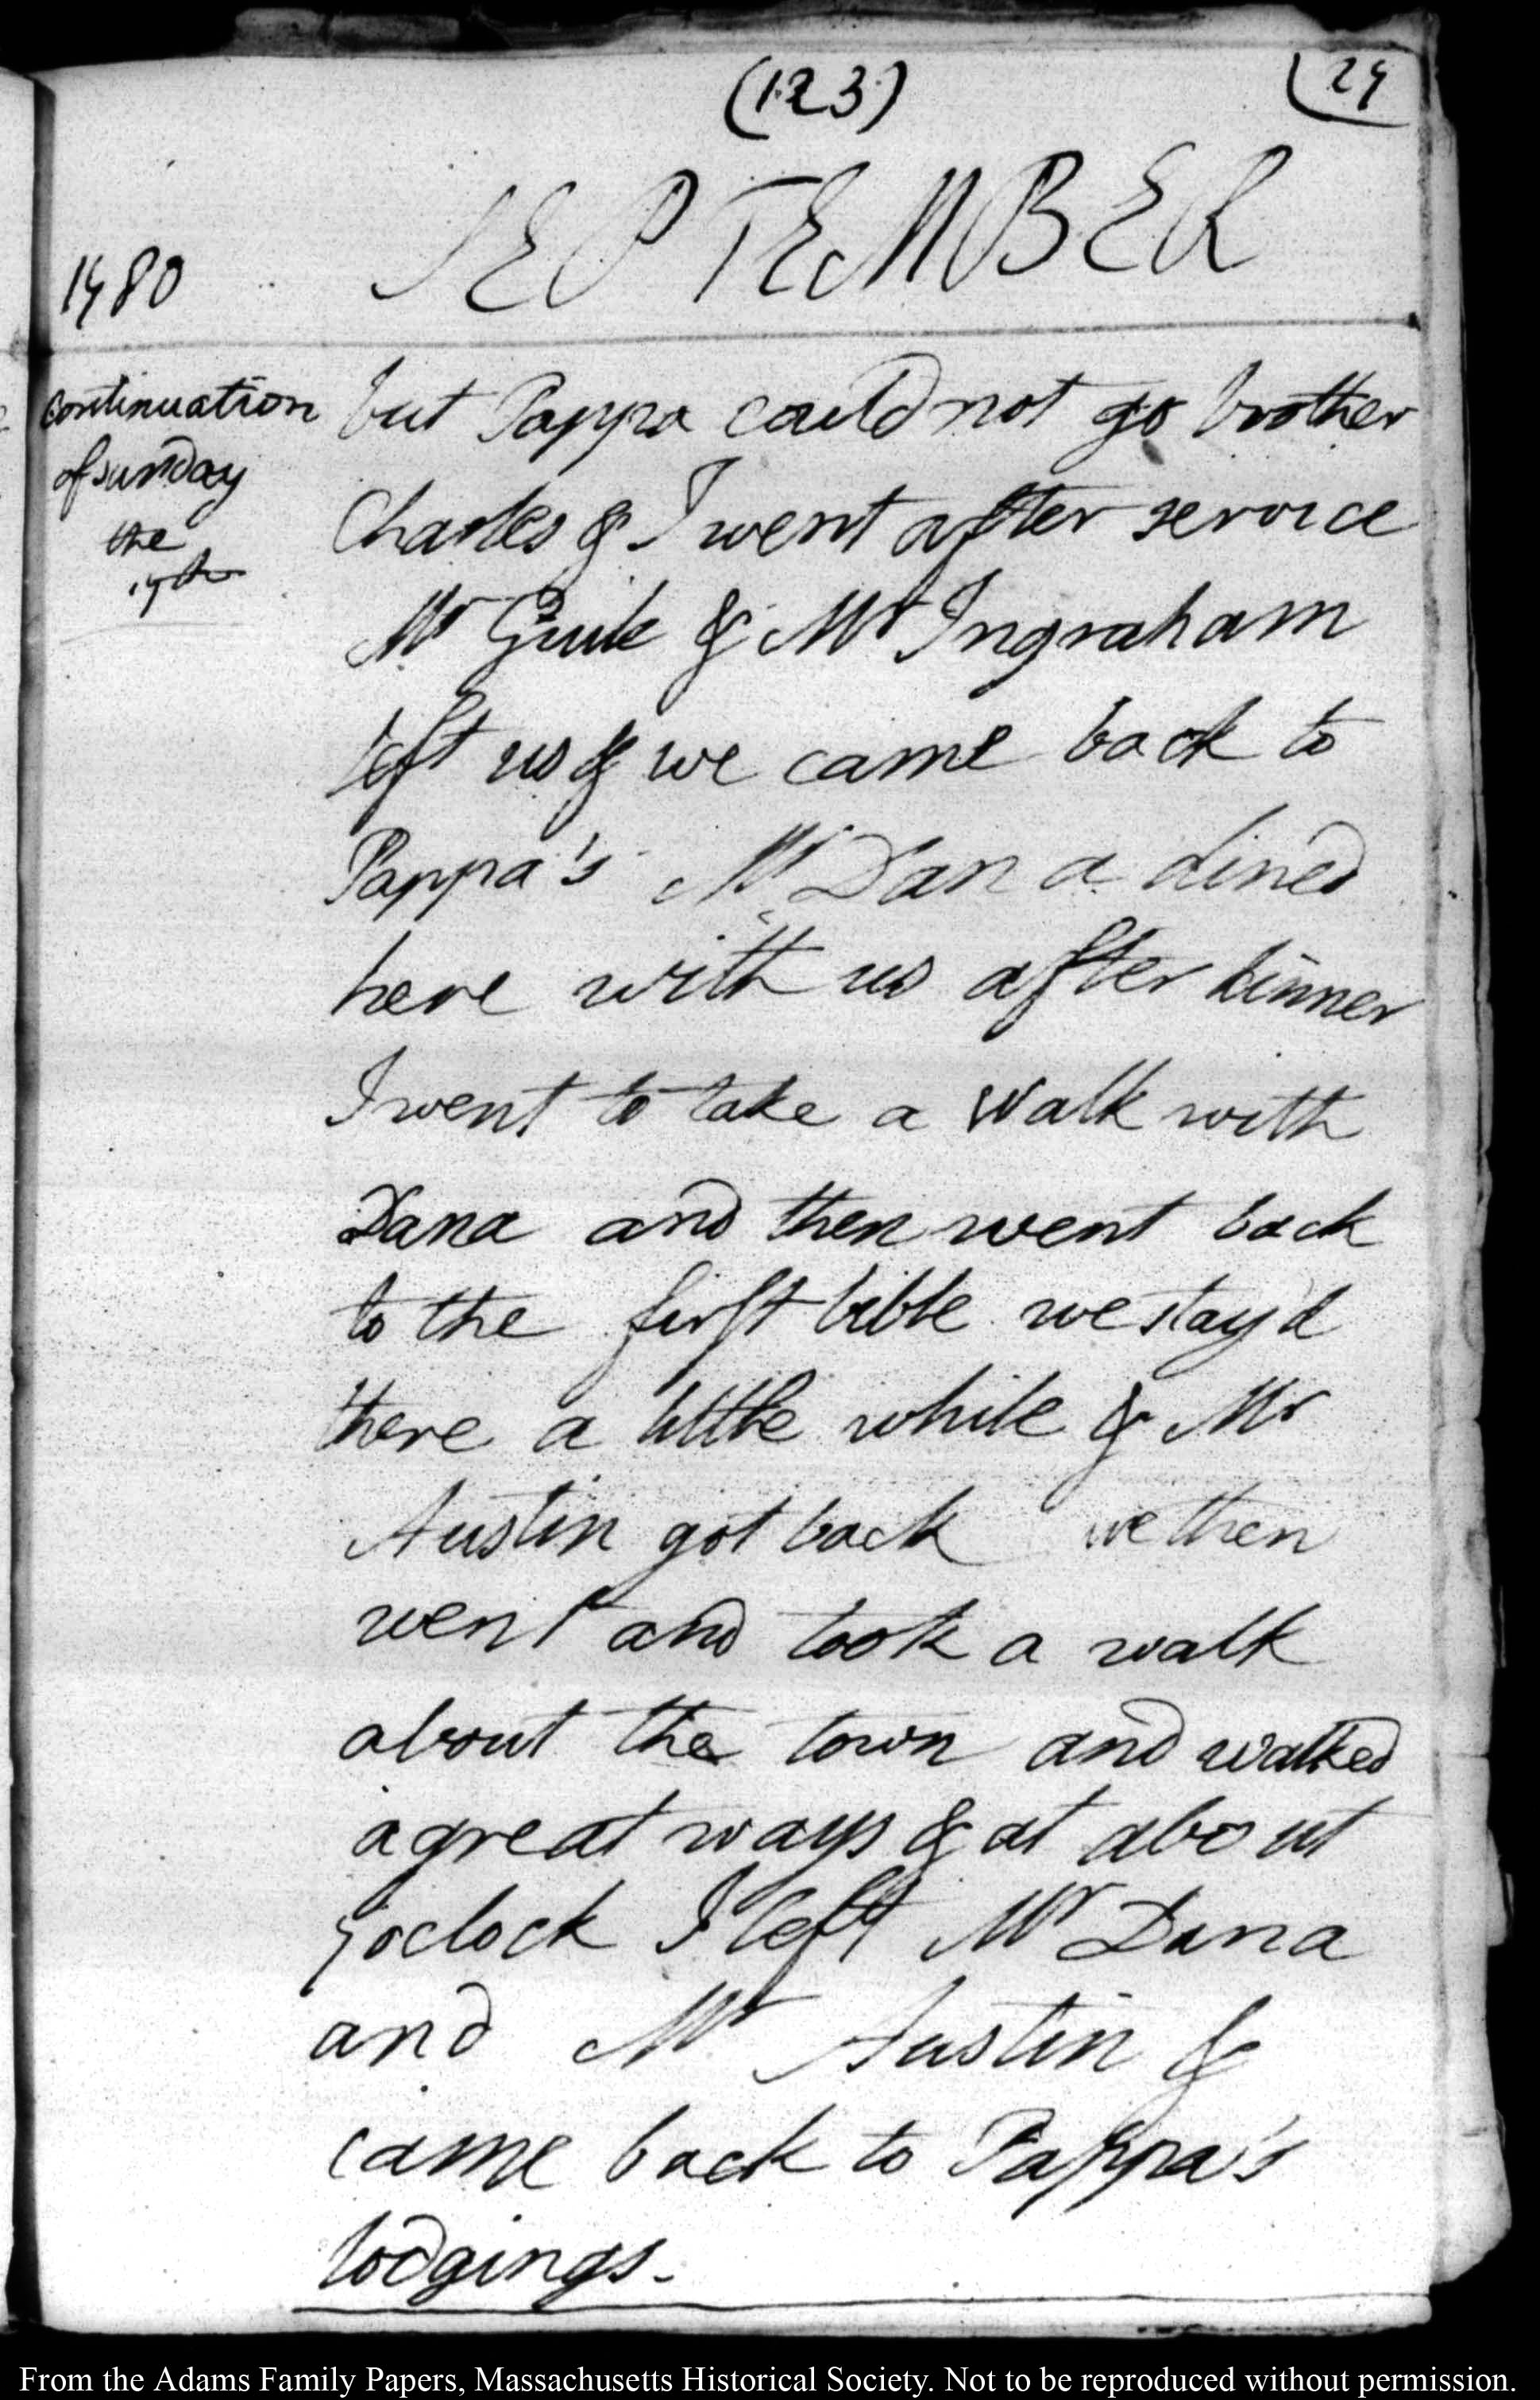 (123)
27
SEPTEMBER
1780
Continuation
of sunday
the
17th
but Pappa could not go brother
Charles & I went after service
Mr Guile & Mr Ingraham
left us & we came back to
Pappa's Mr Dana dined
here with us after dinner
I went to take a walk with
Dana and then went back
to the first bible we stay'd
there a little while & Mr
Austin got back we then
went and took a walk
about the town and walked
a great ways & at about
7 oclock I left Mr Dana
and Mr Austin &
came back to Pappa's
lodgings.
From the Adams Family Papers, Massachusetts Historical Society. Not to be reproduced without permission.